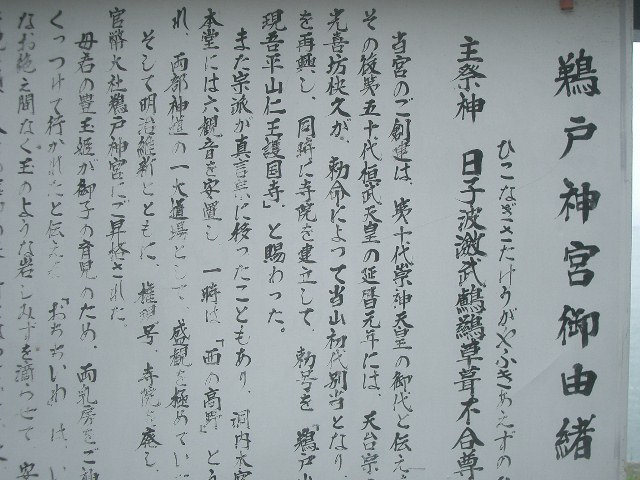 鵜戸神宮御由緒
ひこなぎさたけうがやふきあえずの
主祭神 日子波瀲武鸕鷀草葺不合尊
当宮のご創建は、第十代崇神天皇の御代と伝え
その後第五十代桓武天皇の延暦元年には、天台宗の
光喜坊快久が、勅命によって当山初代別当となり、
を再興し、同時に寺院を建立して、勅号を「鵜戸山
現吾平山仁王護国寺」と賜わった。
また宗派が真言宗に移ったこともあり、洞内
本堂には六観音を安置し 一時は「西の高野」と
れ、両部神道の一大道場として、盛観を極めてい
そして明治維新とともに、権現号、寺院を廃し、
官幣大社鵜戸神宮にご昇格された
母君の豊玉姫が御子の育児のため、両乳房をご神
くっつけて行かれたと伝える「おちちいわ」は、い
なお絶え間なく玉のような岩しみずを滴らせて 安